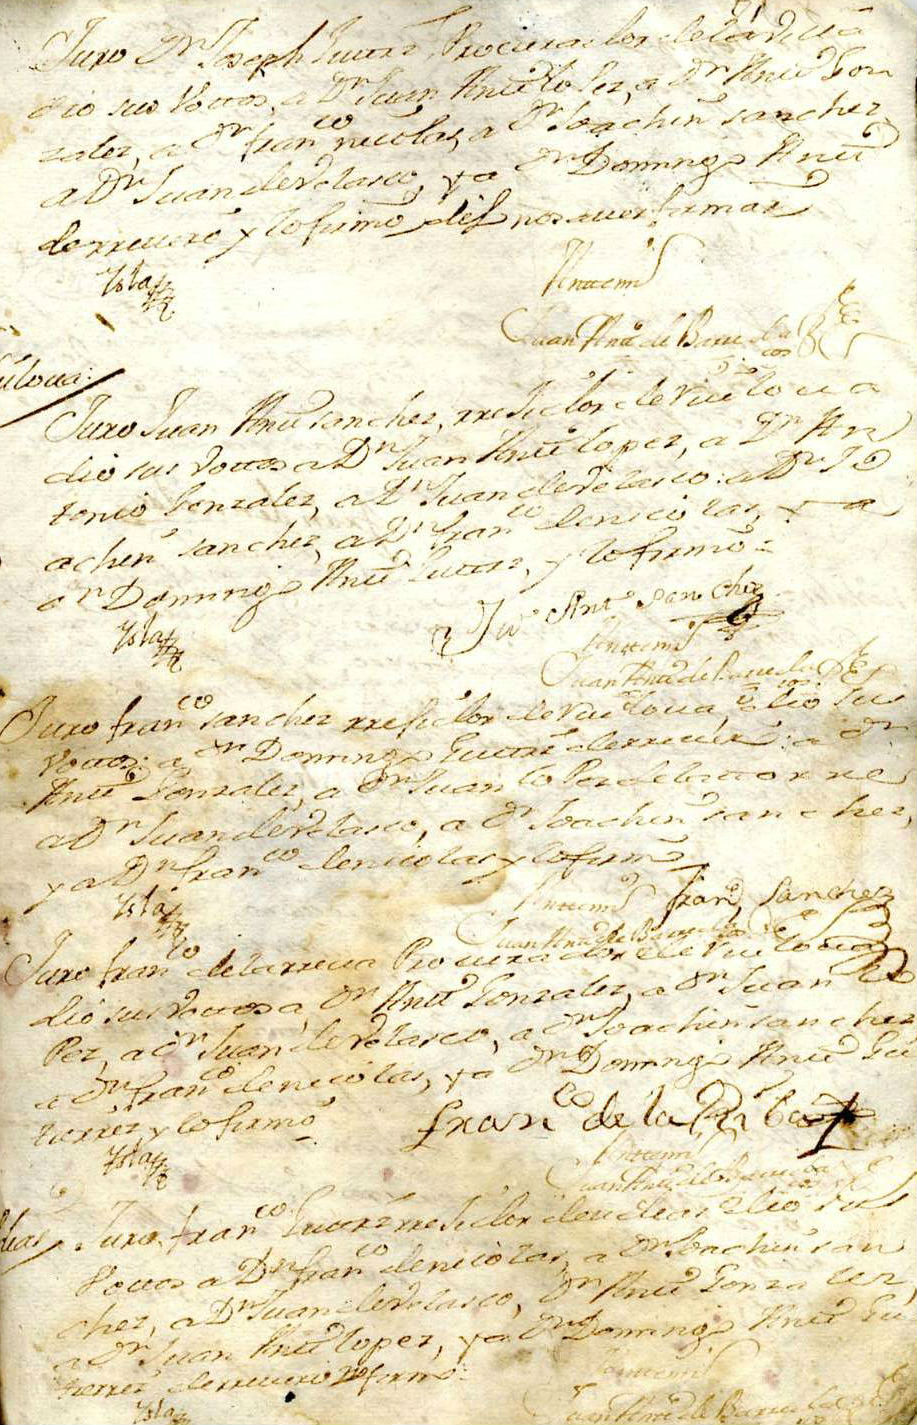 Juro Dn Joseph Procurador de la
dio sus Votos, a Dn Juan Antto Lopez, a Dn Antto Gon
zalez, a Dn franco nicolas, a Dn Joachin sanchez
a Dn Juan de Velasco, y a Dn Domingo Antto
y lo firmo no saver firmar
Ysla
Antemi
Juan Antto de
Juro Juan Antto sanchez, rrexidor de
dio sus Votos a Dn Juan Antto lopez, a Dn An
tonio Gonzalez, a Dn Juan de Velasco: a Dn Jo
achin sanchez, a Dn franco de nicolas, y a
Dn Domingo Antto y lo firmo
Ysla
Jun Anto Sanchez
Antemi
Juan Antto de
Juro franco sanchez rrexidor de dio sus
Votos: a Dn Domingo a Dn
Antto Gonzalez, a Dn Juan lo Pez de la torre
a Dn Juan de Velasco, a Dn Joachin sanchez,
y a Dn franco de nicolas y lo firmo
Ysla
Antemi
franco Sanchez
Juan Antto de
Juro franco de la rreva Procurador de
dio sus Votos a Dn Antto Gonzalez, a Dn Juan lo
Pez, a Dn Juan de Velasco, a Dn Joachin sanchez
a Dn franco de nicolas, y a Dn Domingo Antto Gu
tierrez y lo firmo
Ysla
franco de la Riba
Antemi
Juan Antto de
Juro franco rrexidor de dio sus
Votos a Dn franco de nicolas, a Dn Joachin san
chez, a Dn Juan de Velasco, Dn Antto Gonzalez,
a Dn Juan Antto lopez, y a Dn Domingo Antto Gu
tierrez firmo
Ysla
Antemi
Juan Antto de